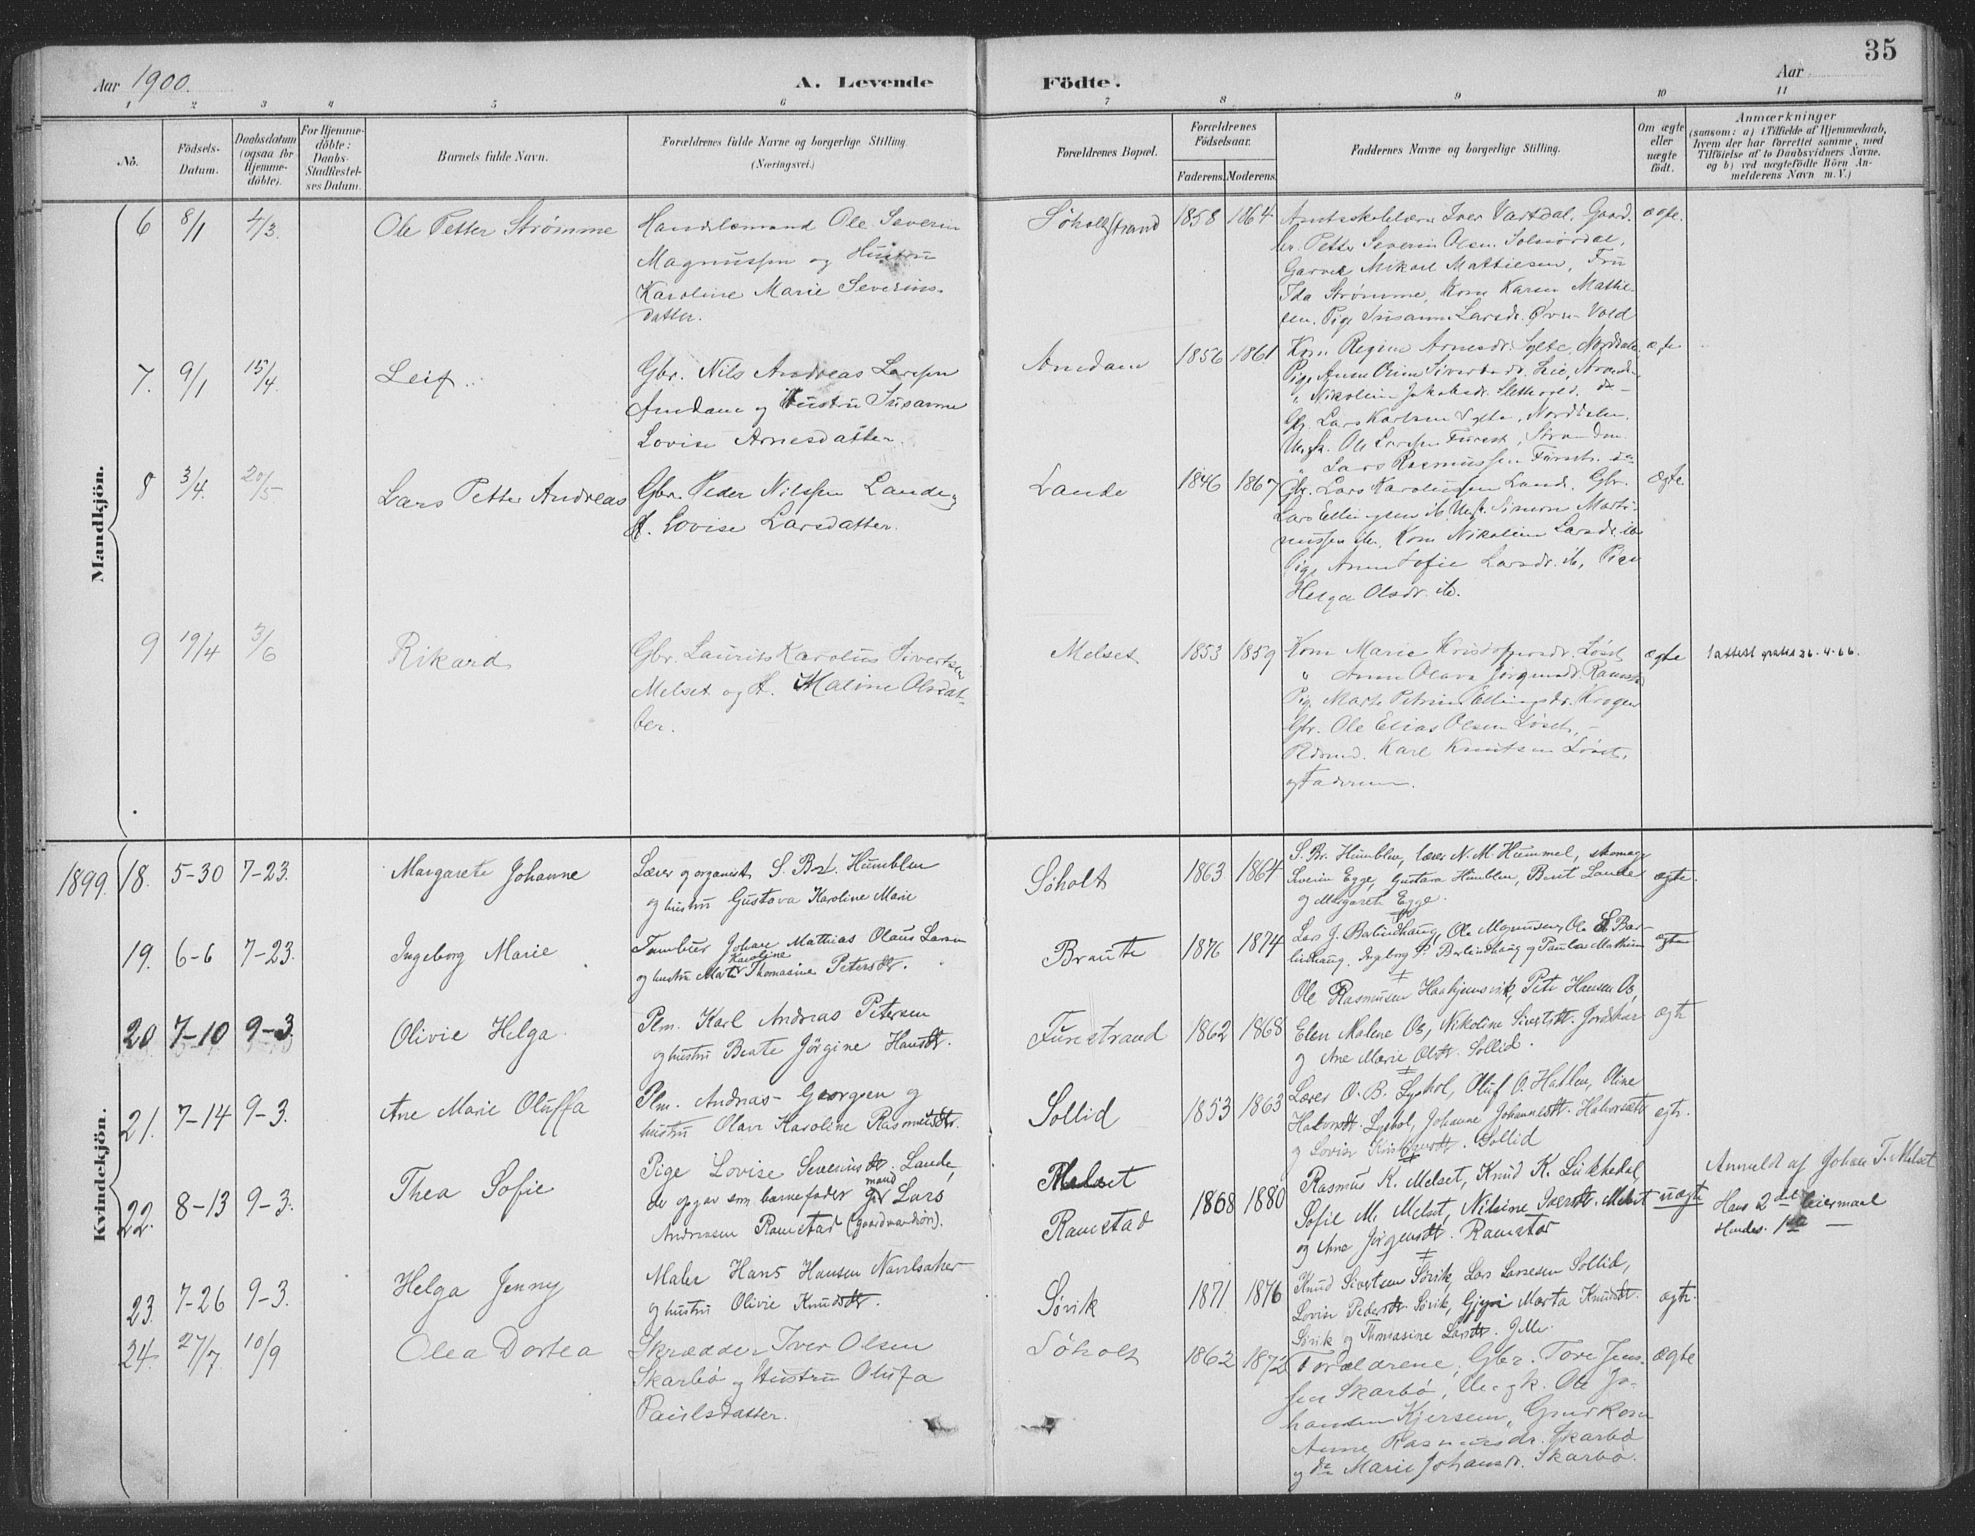 35
Aar 1900.
A. Levende Födte.
Aar
1 2 3 4 5 6 7 8 9 10 11
No.
Födsels-
Datum.
Daabsdatum
(ogsaa for
Hjemme-
döbte).
For Hjemme-
döbte:
Daabs-
Stadfæstel-
ses Datum.
Barnets fulde Navn.
Forældrenes fulde Navne og borgerlige Stilling.
(Næringsvei.)
Forældrenes Bopæl.
Forældrenes
Födselsaar.
Faderens. Moderens.
Faddernes Navne og borgerlige Stilling.
Om ægte
eller
uægte
födt.
Anmærkninger
(saasom: a) i Tilfælde af Hjemmedaab,
hvem der har forrettet samme, med
Tilföielse af to Daabsvidners Navne,
og b) ved uægtefödte Börn An-
melderens Navn m. V.)
Mandkjön.
6 8/1 4/3 Ole Petter Strømme
Handelsmand Ole Severin
Magnussen og Hustru
Karoline Marie Severins-
datter.
Søholtstrand 1858 1864
Amtsskolelærer Iver Vartdal, Gaard-
br. Petter Severin Olsen Solnørdal,
Garver Mikael Mathiesen, Fru
Ida Strømme, Kone Karen Mathie-
sen, Pige Susanne Larsdr. Øvre-Vold
ægte.
7. 9/1 15/4 Leif
Gbr. Nils Andreas Larssen
Amdam og Hustru Susanne
Lovise Arnesdatter.
Amdam 1856 1861
Kone Regine Arnesdr. Sylte, Norddalen
Gbr. Lars Karlsen Sylte, Norddalen.
Ungk. Ole Larssen Furset, Stranden
" Lars Rasmussen Furset. do
ægte
8 3/4. 20/5 Lars Petter Andreas
Gbr. Peder Nilssen Lande og
H. Lovise Larsdatter.
Lande 1846 1867
Gbr. Lars Karolussen Lande. Gbr.
Lars Ellingsen ib. Ungk. Simon Marti-
nussen ib., Kone Nikoline Larsdr. ib
Pige Anne Sofie Larsdr. ib, Pige
Helga Olsdr. ib.
ægte
9 19/4 3/6 Rikard
Gbr. Laurits Karolus Sivertsen
Melset og H. Maline Olsdat-
ter.
Melset 1853 1859
Kone Marie Kristoffersdr. Løset
" Anne Olava Jørgensdr. Ramstad
Pige Marte Petrine Ellingsdr. Krogen
Gbr. Ole Elias Olsen Løset,
Karl Knutsen Løset,
og Faderen.
ægte
1 attest gratis 26.4.66.
Kvindekjön.
1899. 18. 5-30 7-23. Margarete Johanne
Lærer og organist S. Br. Humblen
og hustru Gustava Karoline Marie
Søholt 1863 1864
S. Br. Humblen, lærer N. M. Hummel, skomager
Severin Egge, Gustava Humblen, Berit Lande
og Margarete Egge.
ægte.
19. 6-6 7-23. Ingeborg Marie
Tambur Johan Mathias Olaus Larsen
og hustru Marte Karoline Thomasine Petersdtr.
Braute 1876 1874
Lars J. Balindhaug, Ole Magnusen, Ole L. Bar-
lindhaug, Ingeborg P. Barlindhaug og Paulas Mathisen
ægte
20 7-10 9-3. Olivie Helga
Plm. Karl Andreas Petersen
og hustru Beate Jörgine Hansdtr.
Furestrand 1862 1868
Ole Rasmusen Haahjemsvik, Peter Hansen Os,
Elen Malene Os, Nikoline Sivertsdtr. Jordskar
og Ane Marie Olsdtr. Sollid.
ægte
21. 7-14 9-3. Ane Marie Oluffa
Plm. Andreas Georgsen og
hustru Olave Karoline Rasmusdtr.
Sollid 1853 1863
Lærer O. B. Lyshol, Oluf O. Hatlen, Oline
Halvorsdtr. Lyshol, Johanne Johannesdtr. Halvorsæter
og Lovise Kristoffersdtr. Sollid
ægte.
22. 8-13 9-3. Thea Sofie
Pige Lovise Severinsdtr. Lande,
der opgav som barnefader gbr mand Lars
Andreasen Ramstad (gaardmandsön).
Melset
Ramstad 1868 1880
Rasmus K. Melset, Knud K. Likkedal,
Sofie M. Melset, Nilsine Iversdtr. Melset
og Ane Jørgensdtr. Ramstad
uægte
Anmeldt af Johan T. Melset
Hans 2det leiermaal
Hendes 1ste —
23. 7-26 9-3. Helga Jenny
Maler Hans Hansen Navelsaker
og hustru Olivie Knudsdtr.
Sövik 1871 1876
Knud Sivertsen Sövik, Lars Larsen Sollid,
Lovise Pedersdtr. Sövik, Marta Knudsdtr.
Sövik og Thomasine Larsdtr.
ægte.
24. 27/7. 10/9 Olea Dortea
Skrædder Iver Olsen
Skarbö og Hustru Olufa
Paulsdatter.
Søholt 1862 1872
Forældrene, Gbr. Tore Jens-
sen Skarbö, Ungk. Ole Jo-
hansen Kjersem, Gaardkone
Anne Rasmusdr. Skarbö
og do Marie Johansdr. Skarbö.
ægte